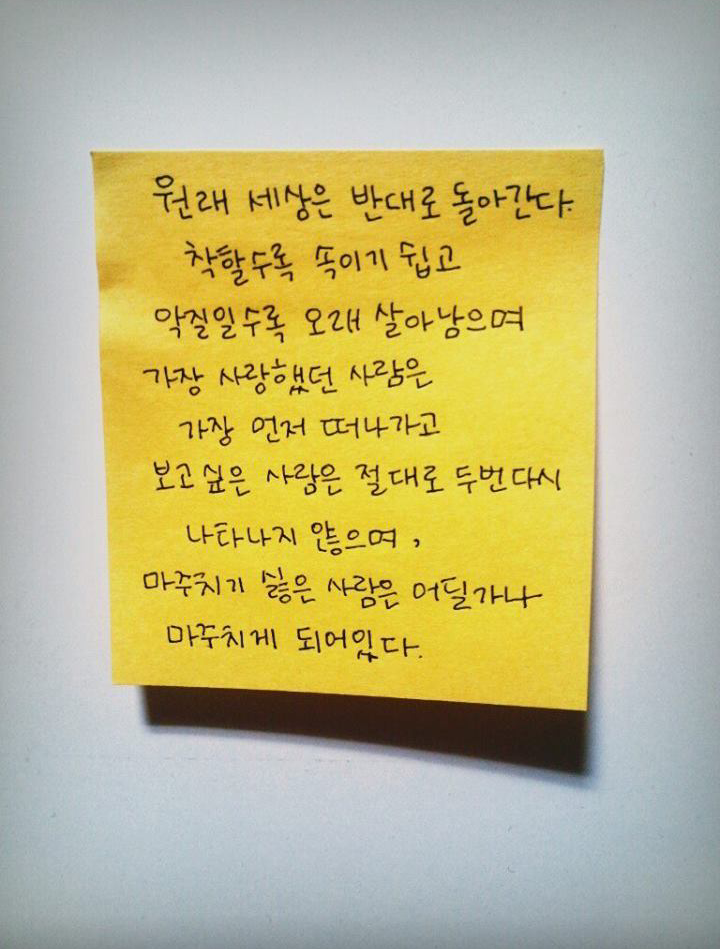 원래 세상은 반대로 돌아간다.
착할수록 속이기 쉽고
악질일수록 오래 살아남으며
가장 사랑했던 사람은
가장 먼저 떠나가고
보고싶은 사람은 절대로 두번다시
나타나지 않으며,
마주치기 싫은 사람은 어딜가나
마주치게 되어있다.